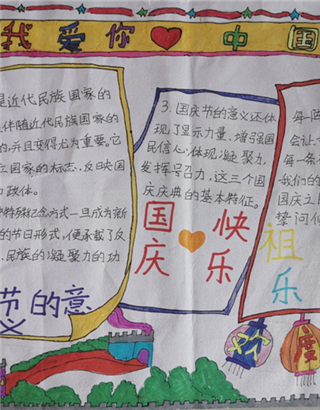 我爱你中国
是近代民族国家的
伴随近代民族国家的
,并且变得尤为重要。它
立国家的标志,反映国
和政体。
种特殊纪念方式一旦成为新
的节日形式,便承载了反
、民族的凝聚力的功
节的意
义
3.国庆节的意义还体
现了显示力量,增强国
民信心,体现凝聚力,
发挥号召力,这三个国
庆庆典的基本特征。
国庆
快乐
每一阵
会让
每一条
我们的
国庆上
垫问
祖
乐
欢
度